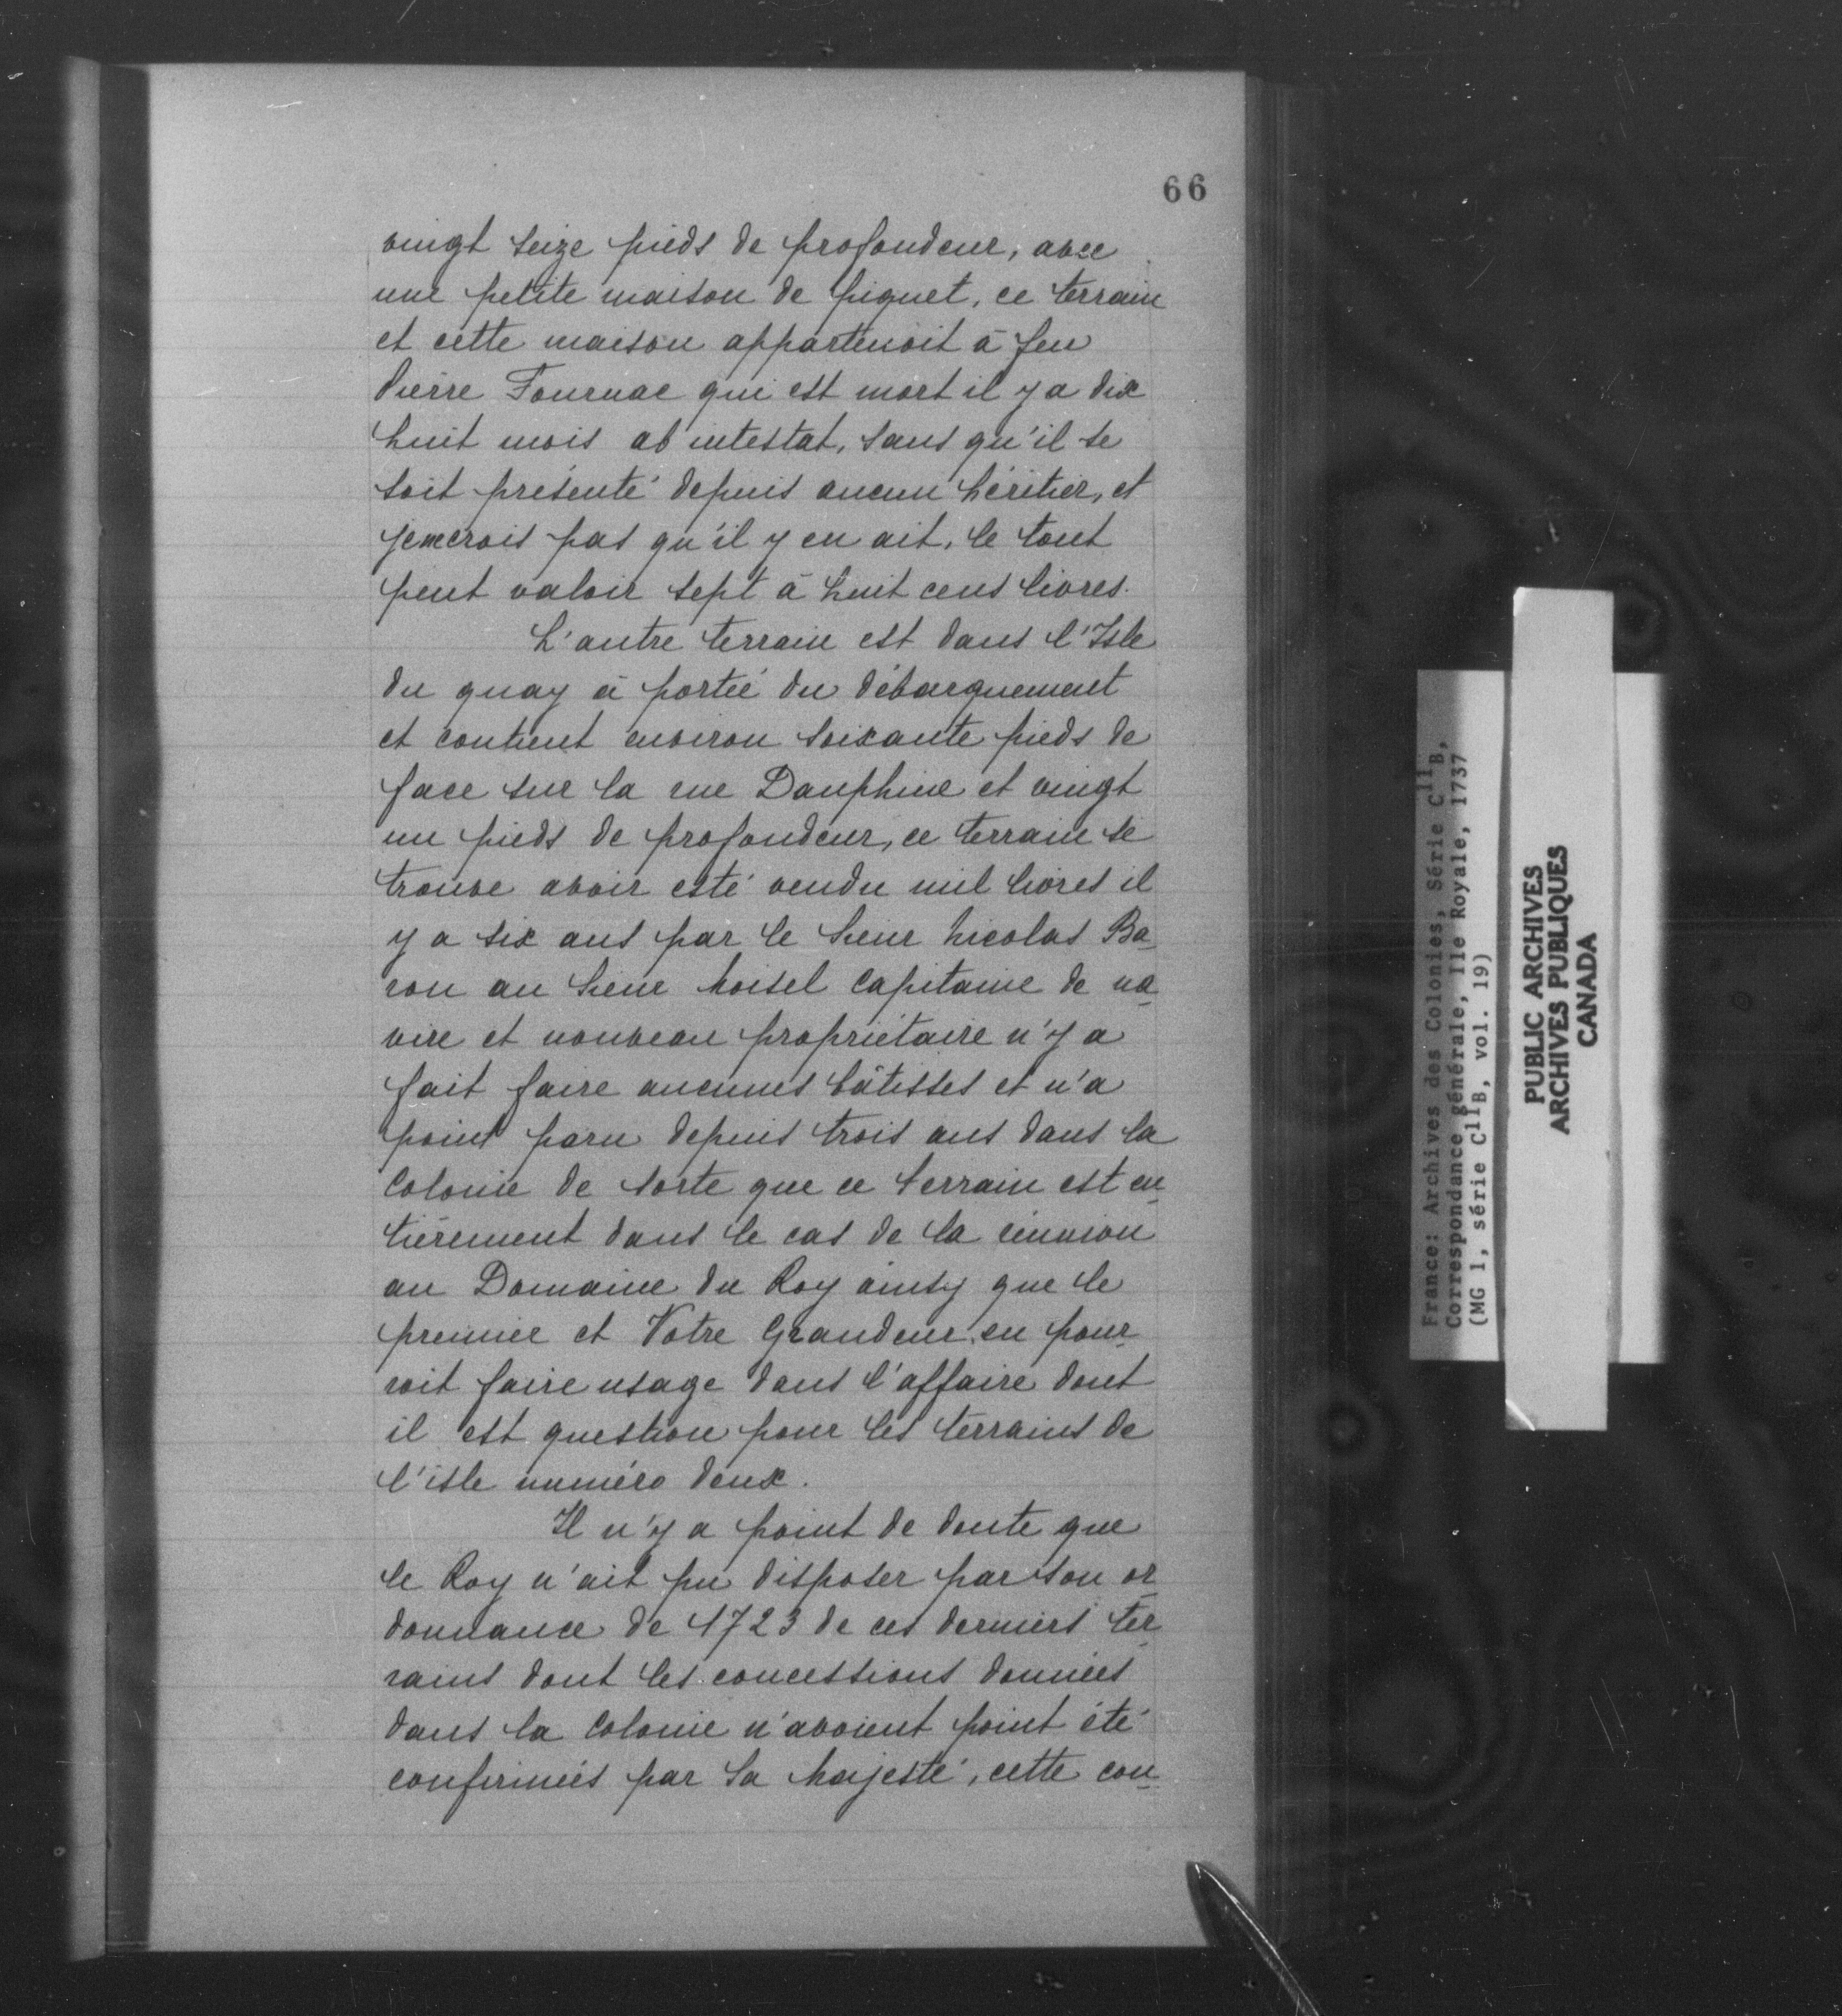 66
vingt seize pieds de profondeur, avec
une petite maison de piquet, ce terrain
et cette maison appartenoit à feu
Pierre Fournac qui est mort il y a dix
huit mois ab intestat, sans qu'il se
soit présenté depuis aucun héritier, et
je ne crois pas qu'il y en ait, le tout
peut valoir sept à huit cens livres.
L'autre terrain est dans l'Isle
du quay à portée du débarquement
et contient environ soixante pieds de
face sur la rue Dauphine et vingt
un pieds de profondeur, ce terrain se
trouve avoir esté vendu mil livres il
y a six ans par le Sieur Nicolas Ba-
ron au Sieur Moisel Capitaine de na-
vire et nouveau propriétaire n'y a
fait faire aucunes bâtisses et n'a
point paru depuis trois ans dans la
Colonie de sorte que ce terrain est en-
tièrement dans le cas de la réunion
au Domaine du Roy ainsy que le
premier et Votre Grandeur en pour-
roit faire usage dans l'affaire dont
il est question pour les terrains de
l'isle numéro deux.
Il n'y a point de doute que
le Roy n'ait pu disposer par son or-
donnance de 1723 de ces derniers ter-
rains dont les concessions données
dans la Colonie n'avoient point été
confirmées par Sa Majesté, cette con-
France: Archives des Colonies, Série C11B,
Correspondance générale, Ile Royale, 1737
(MG 1, série C11B, vol. 19)
PUBLIC ARCHIVES
ARCHIVES PUBLIQUES
CANADA